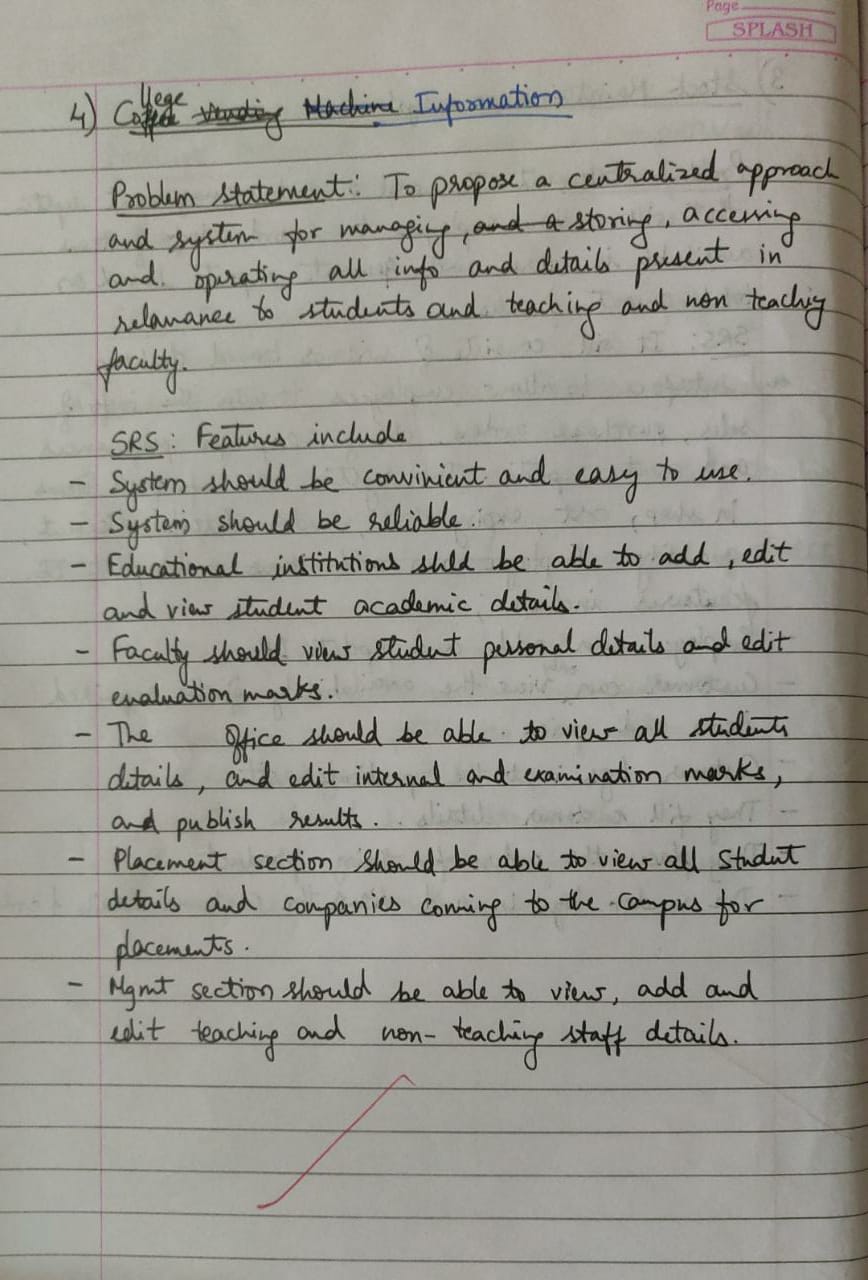 Page
SPLASH
4) College Information
Problem statement: To propose a centralized approach
and system for managing, storing, accessing
and operating all info and details present in
relavance to students and teaching and non teaching
faculty.
SRS: Features include
- System should be convinient and easy to use.
- System should be reliable.
- Educational institutions shld be able to add, edit
and view student academic details.
- Faculty should view student personal details and edit
evaluation marks.
- The office should be able to view all students
details, and edit internal and examination marks,
and publish results.
- Placement section should be able to view all student
details and companies coming to the campus for
placements.
- Mgmt section should be able to view, add and
edit teaching and non-teaching staff details.